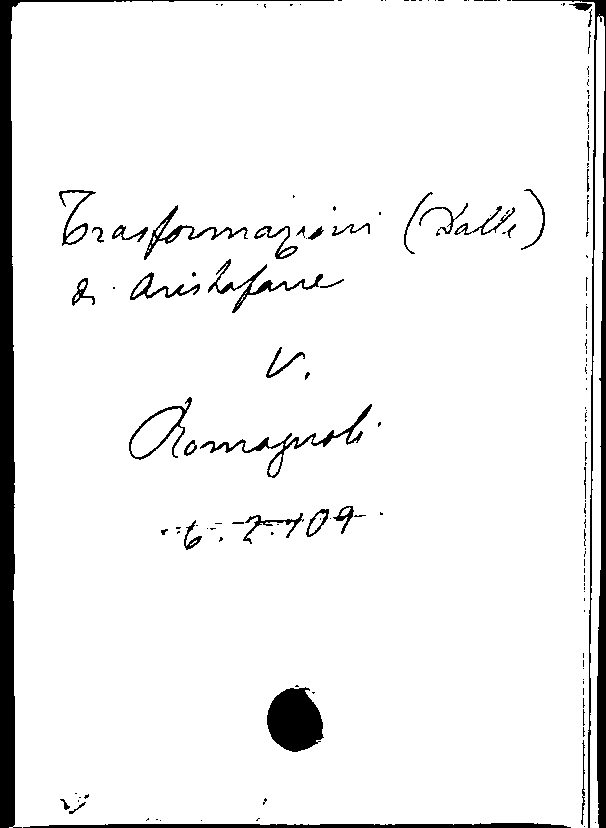 Trasformazioni (Dalle)
di Aristofane
V.
Romagnoli
6.2.409